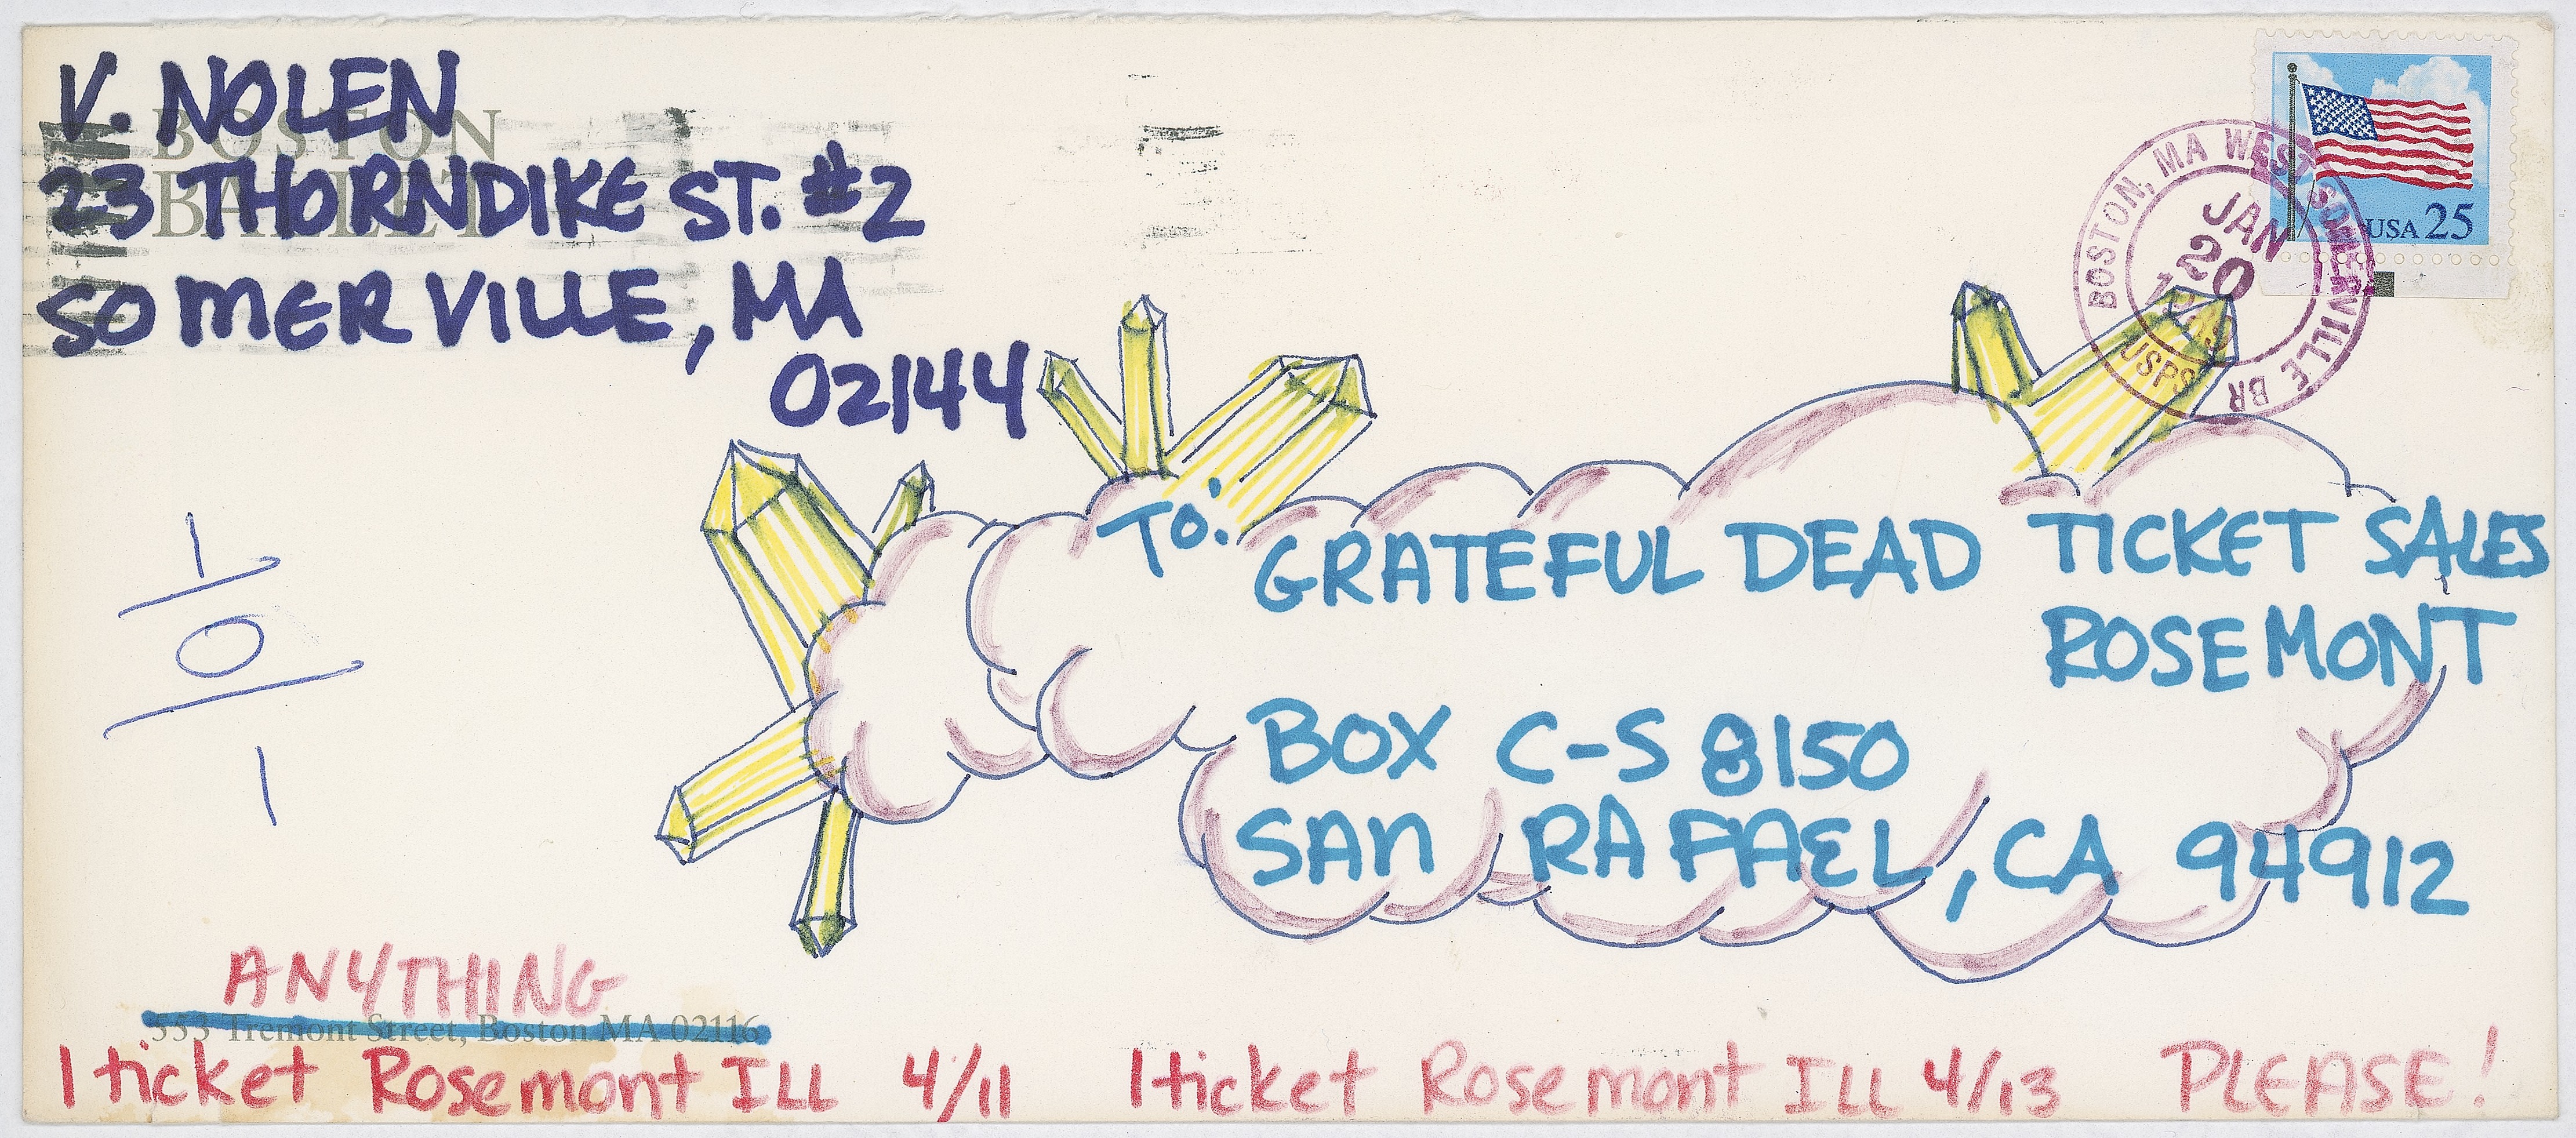 V. NOLEN
BOSTON
23 THORNDIKE ST. #2
BALLET
SOMERVILLE, MA
02144
BOSTON, MA WEST SOMERVILLE BR
JAN
20
USPS
USA 25
1
0
1
TO:
GRATEFUL DEAD TICKET SALES
ROSEMONT
BOX C-S 8150
SAN RAFAEL, CA 94912
ANYTHING
553 Tremont Street, Boston MA 02116
1 ticket Rosemont ILL 4/11 1 ticket Rosemont ILL 4/13 PLEASE!